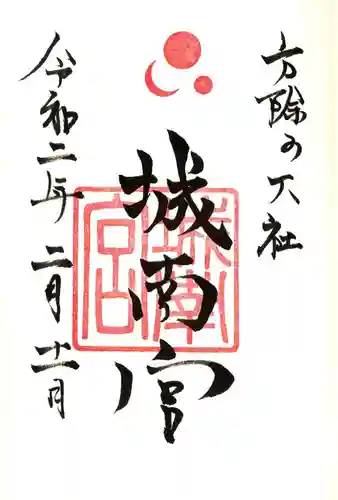 方除の大社
城南宮
令和二年二月十一日
城南宮